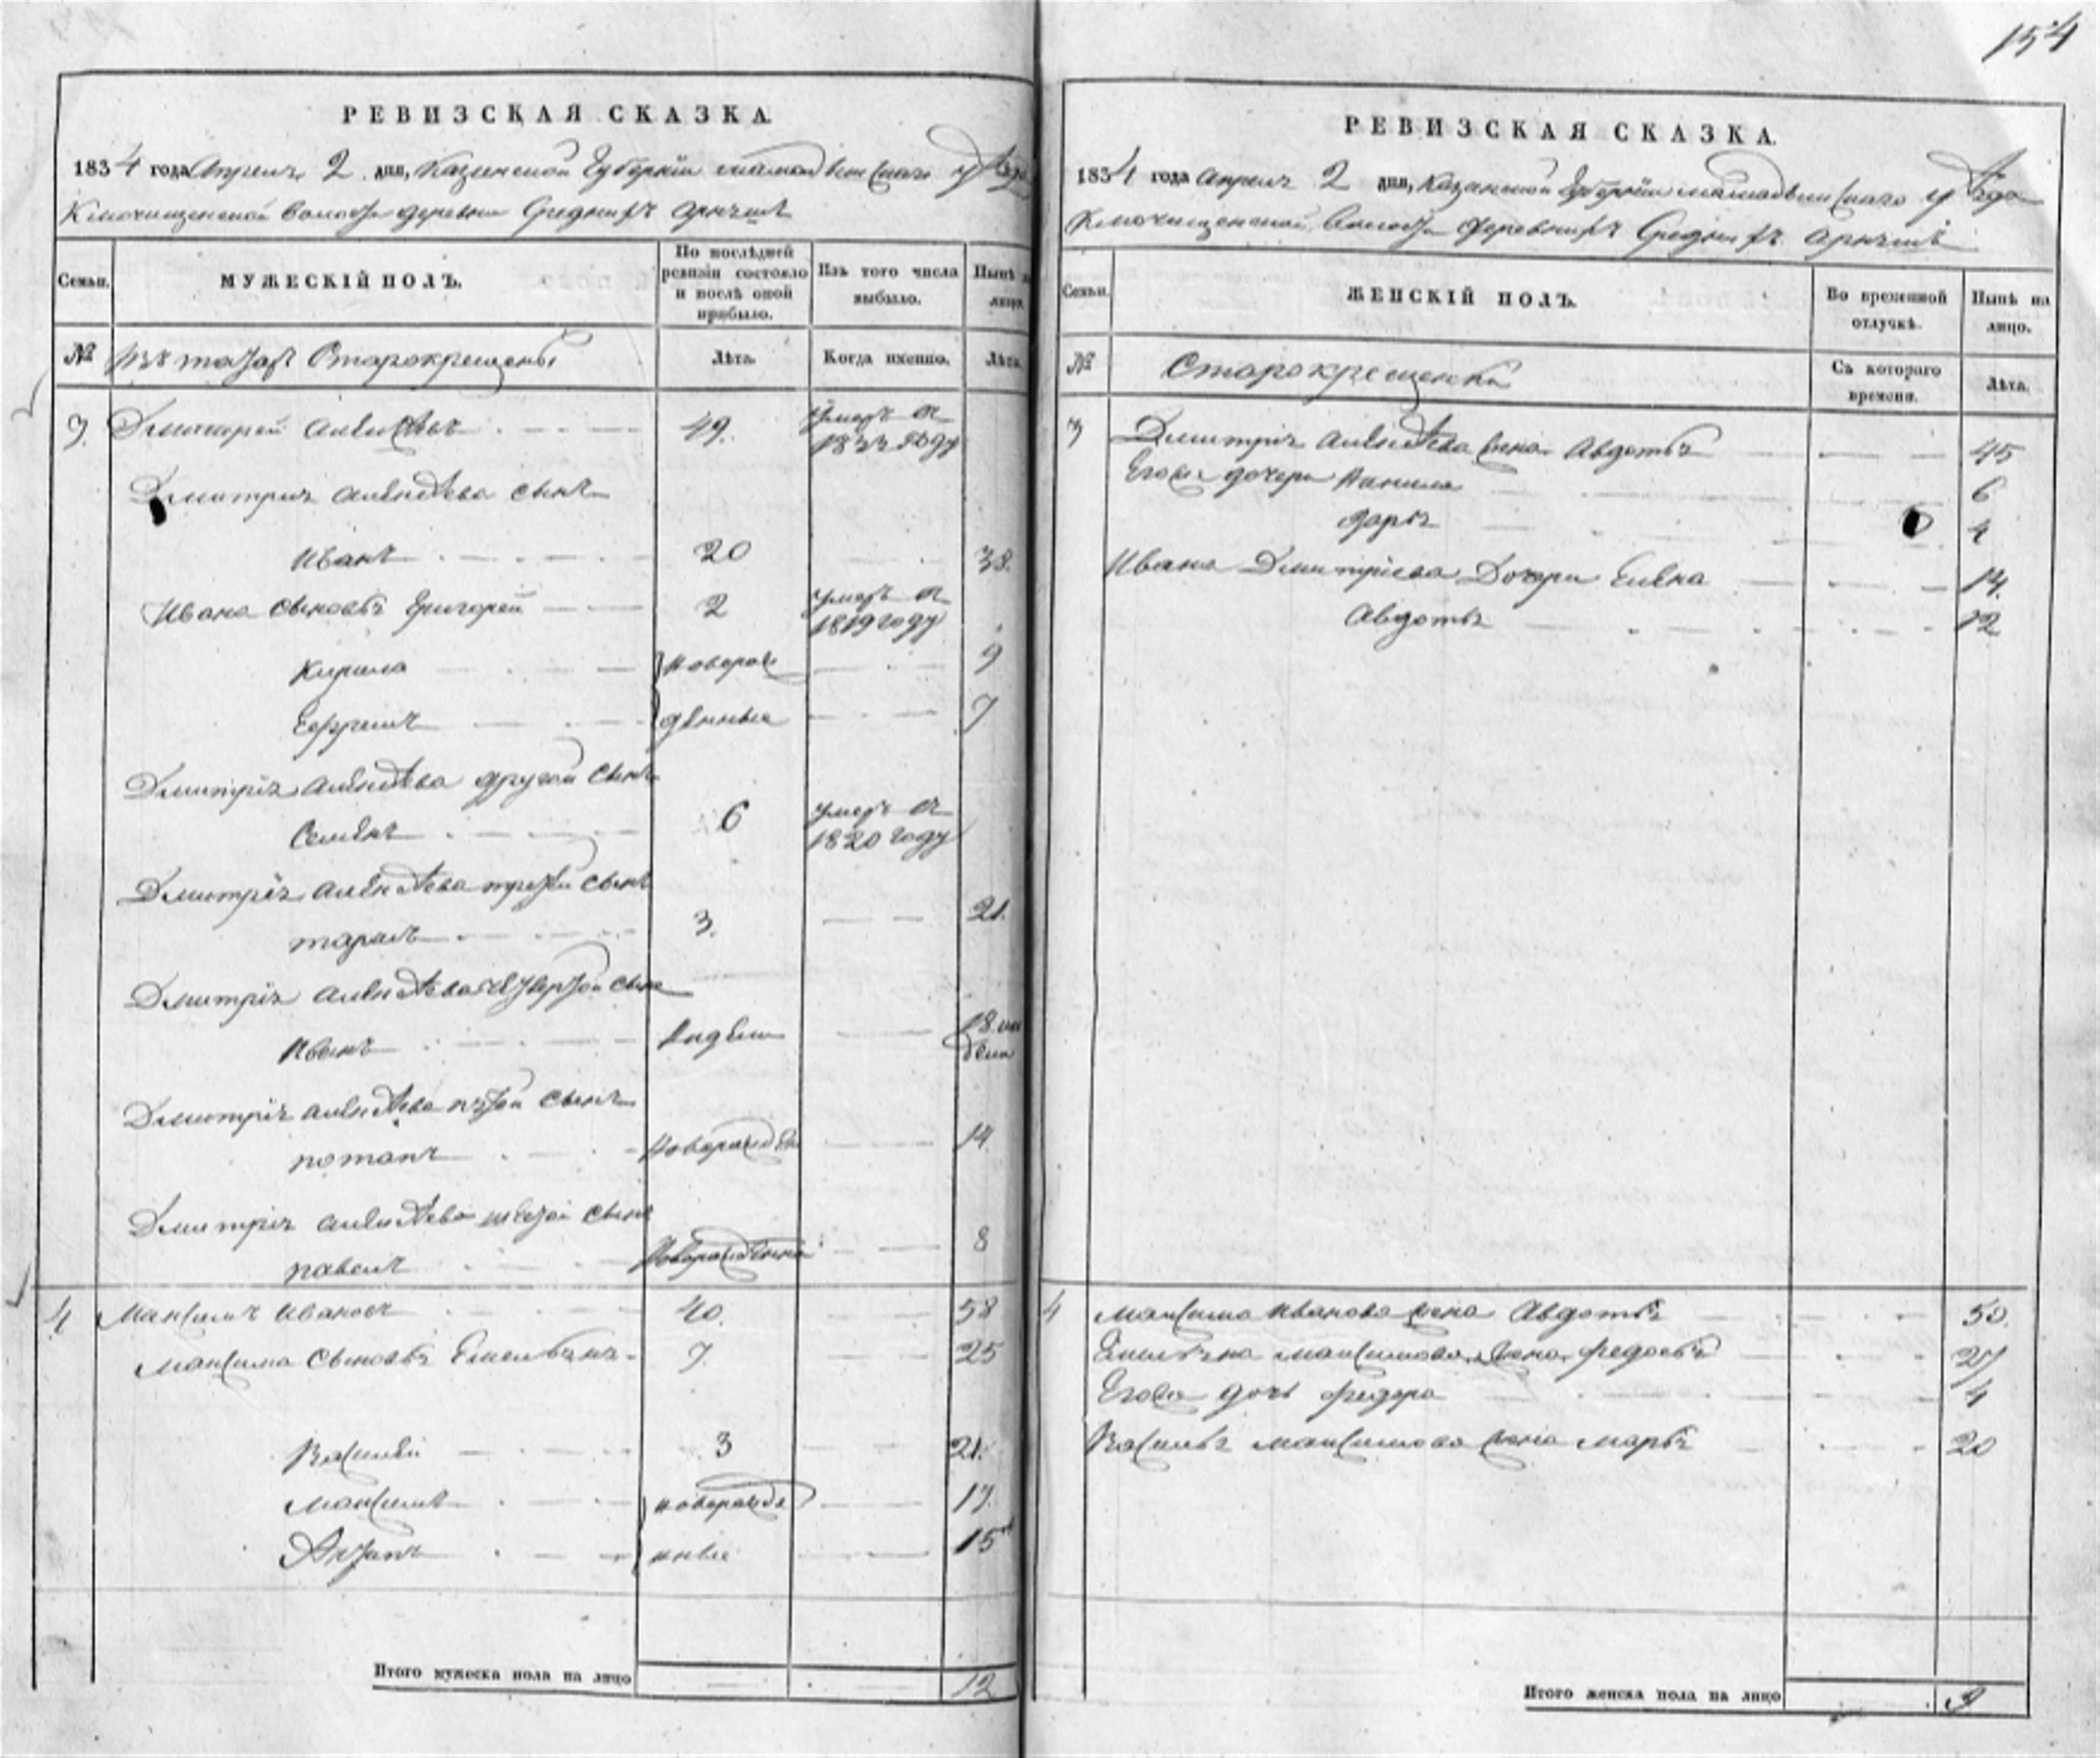 154
РЕВИЗСКАЯ СКАЗКА
1834 года Апреля 2 дня, Казанской Губернии Мамадышскаго уѣзда
Ключищенской волости деревни Среднихъ Арняшъ
Семьи. МУЖЕСКІЙ ПОЛЪ. По послѣдней ревизіи состояло и послѣ оной прибыло. Изъ того числа выбыло. Нынѣ на лицо.
№ Изъ татаръ Старокрещены Лѣта. Когда именно. Лѣта.
3 Дмитрей Алексѣевъ 49. умеръ въ 1833 году
Дмитрія Алексѣева сынъ
Иванъ 20 38.
Ивана сыновья Григорей 2 умеръ въ 1819 году
Кирила новорож 9
Ефремъ денные 7
Дмитрія Алексѣева другой сынъ
Семенъ 6 умеръ въ 1820 году
Дмитрія Алексѣева третей сынъ
Тарасъ 3. 21.
Дмитрія Алексѣева четвертой сынъ
Иванъ 18
Дмитрія Алексѣева пятой сынъ
Потапъ новорожден 14
Дмитрія Алексѣева шестой сынъ
Павелъ новорожденной 8
4 Максимъ Ивановъ 40. 58
Максима сыновья Емельянъ 7. 25
Василей 3 21.
Максимъ новорожде 17.
Антипъ нные 15
Итого мужеска пола на лицо 12
РЕВИЗСКАЯ СКАЗКА.
1834 года Апреля 2 дня, Казанской Губернии Мамадышскаго уѣзда
Ключищенской волости деревни Среднихъ Арняшъ
Семьи. ЖЕНСКІЙ ПОЛЪ. Во временной отлучкѣ. Нынѣ на лицо.
№ Старокрещенки Съ котораго времени. Лѣта.
3 Дмитрія Алексѣева жена Авдотья 45
Его же дочери 6
Дарья 4
Ивана Дмитріева дочери Елена 14.
Авдотья 12
4 Максима Иванова жена Авдотья 50.
Емельяна Максимова жена Федосья 27
Его же дочь Федора 4
Василья Максимова жена Марья 20
Итого женска пола на лицо 9